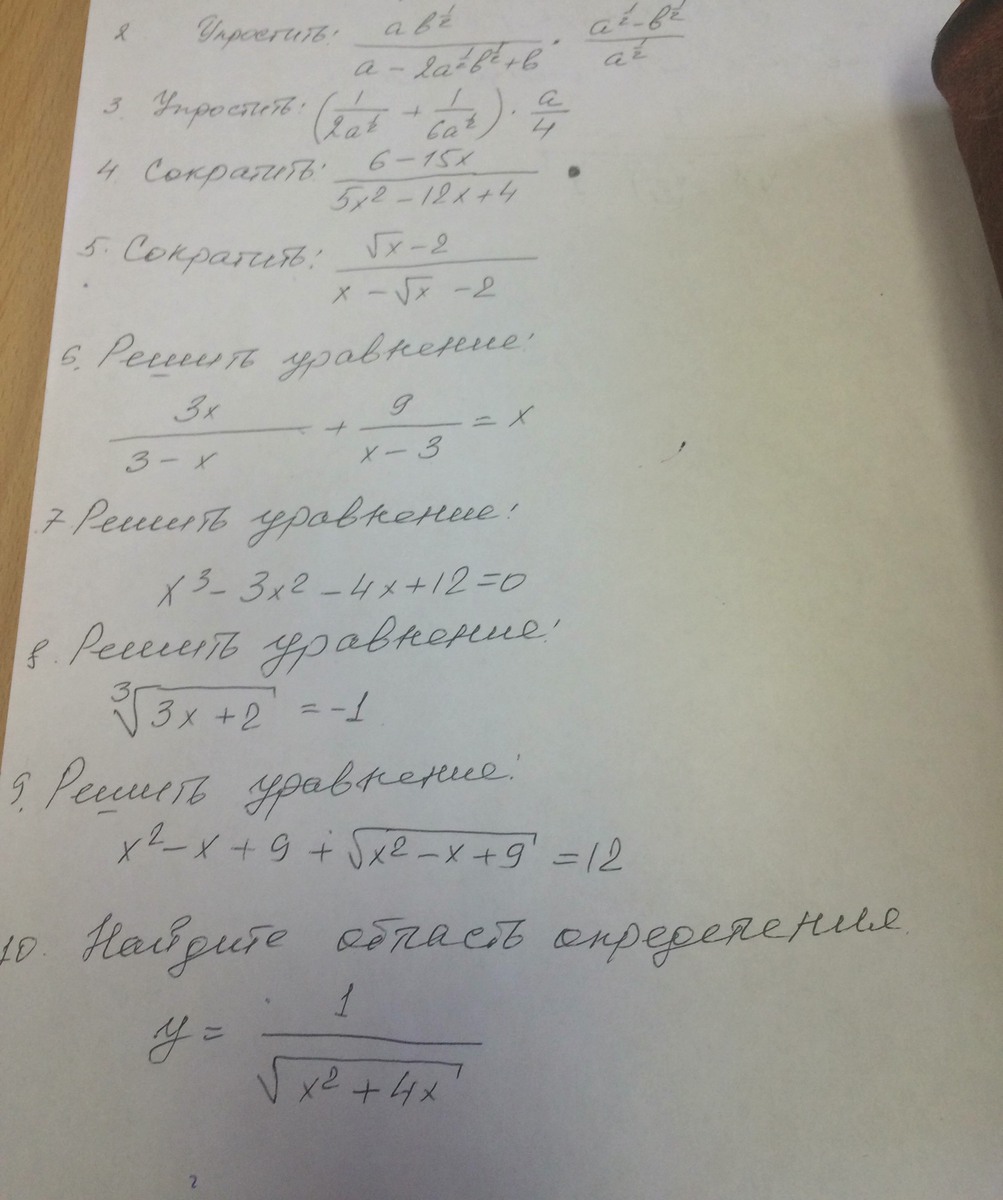 2 Упростить: \frac{a b^{\frac{1}{2}}}{a - 2a^{\frac{1}{2}}b^{\frac{1}{2}} + b} \cdot \frac{a^{\frac{1}{2}} - b^{\frac{1}{2}}}{a^{\frac{1}{2}}}
3. Упростить: \left(\frac{1}{2a^{\frac{1}{2}}} + \frac{1}{6a^{\frac{1}{2}}}\right) \cdot \frac{a}{4}
4 Сократить: \frac{6 - 15x}{5x^2 - 12x + 4}
5. Сократить: \frac{\sqrt{x} - 2}{x - \sqrt{x} - 2}
6. Решить уравнение:
\frac{3x}{3 - x} + \frac{9}{x - 3} = x
7 Решить уравнение:
x^3 - 3x^2 - 4x + 12 = 0
8. Решить уравнение:
\sqrt[3]{3x + 2} = -1
9. Решить уравнение:
x^2 - x + 9 + \sqrt{x^2 - x + 9} = 12
10. Найдите область определения
y = \frac{1}{\sqrt{x^2 + 4x}}
2